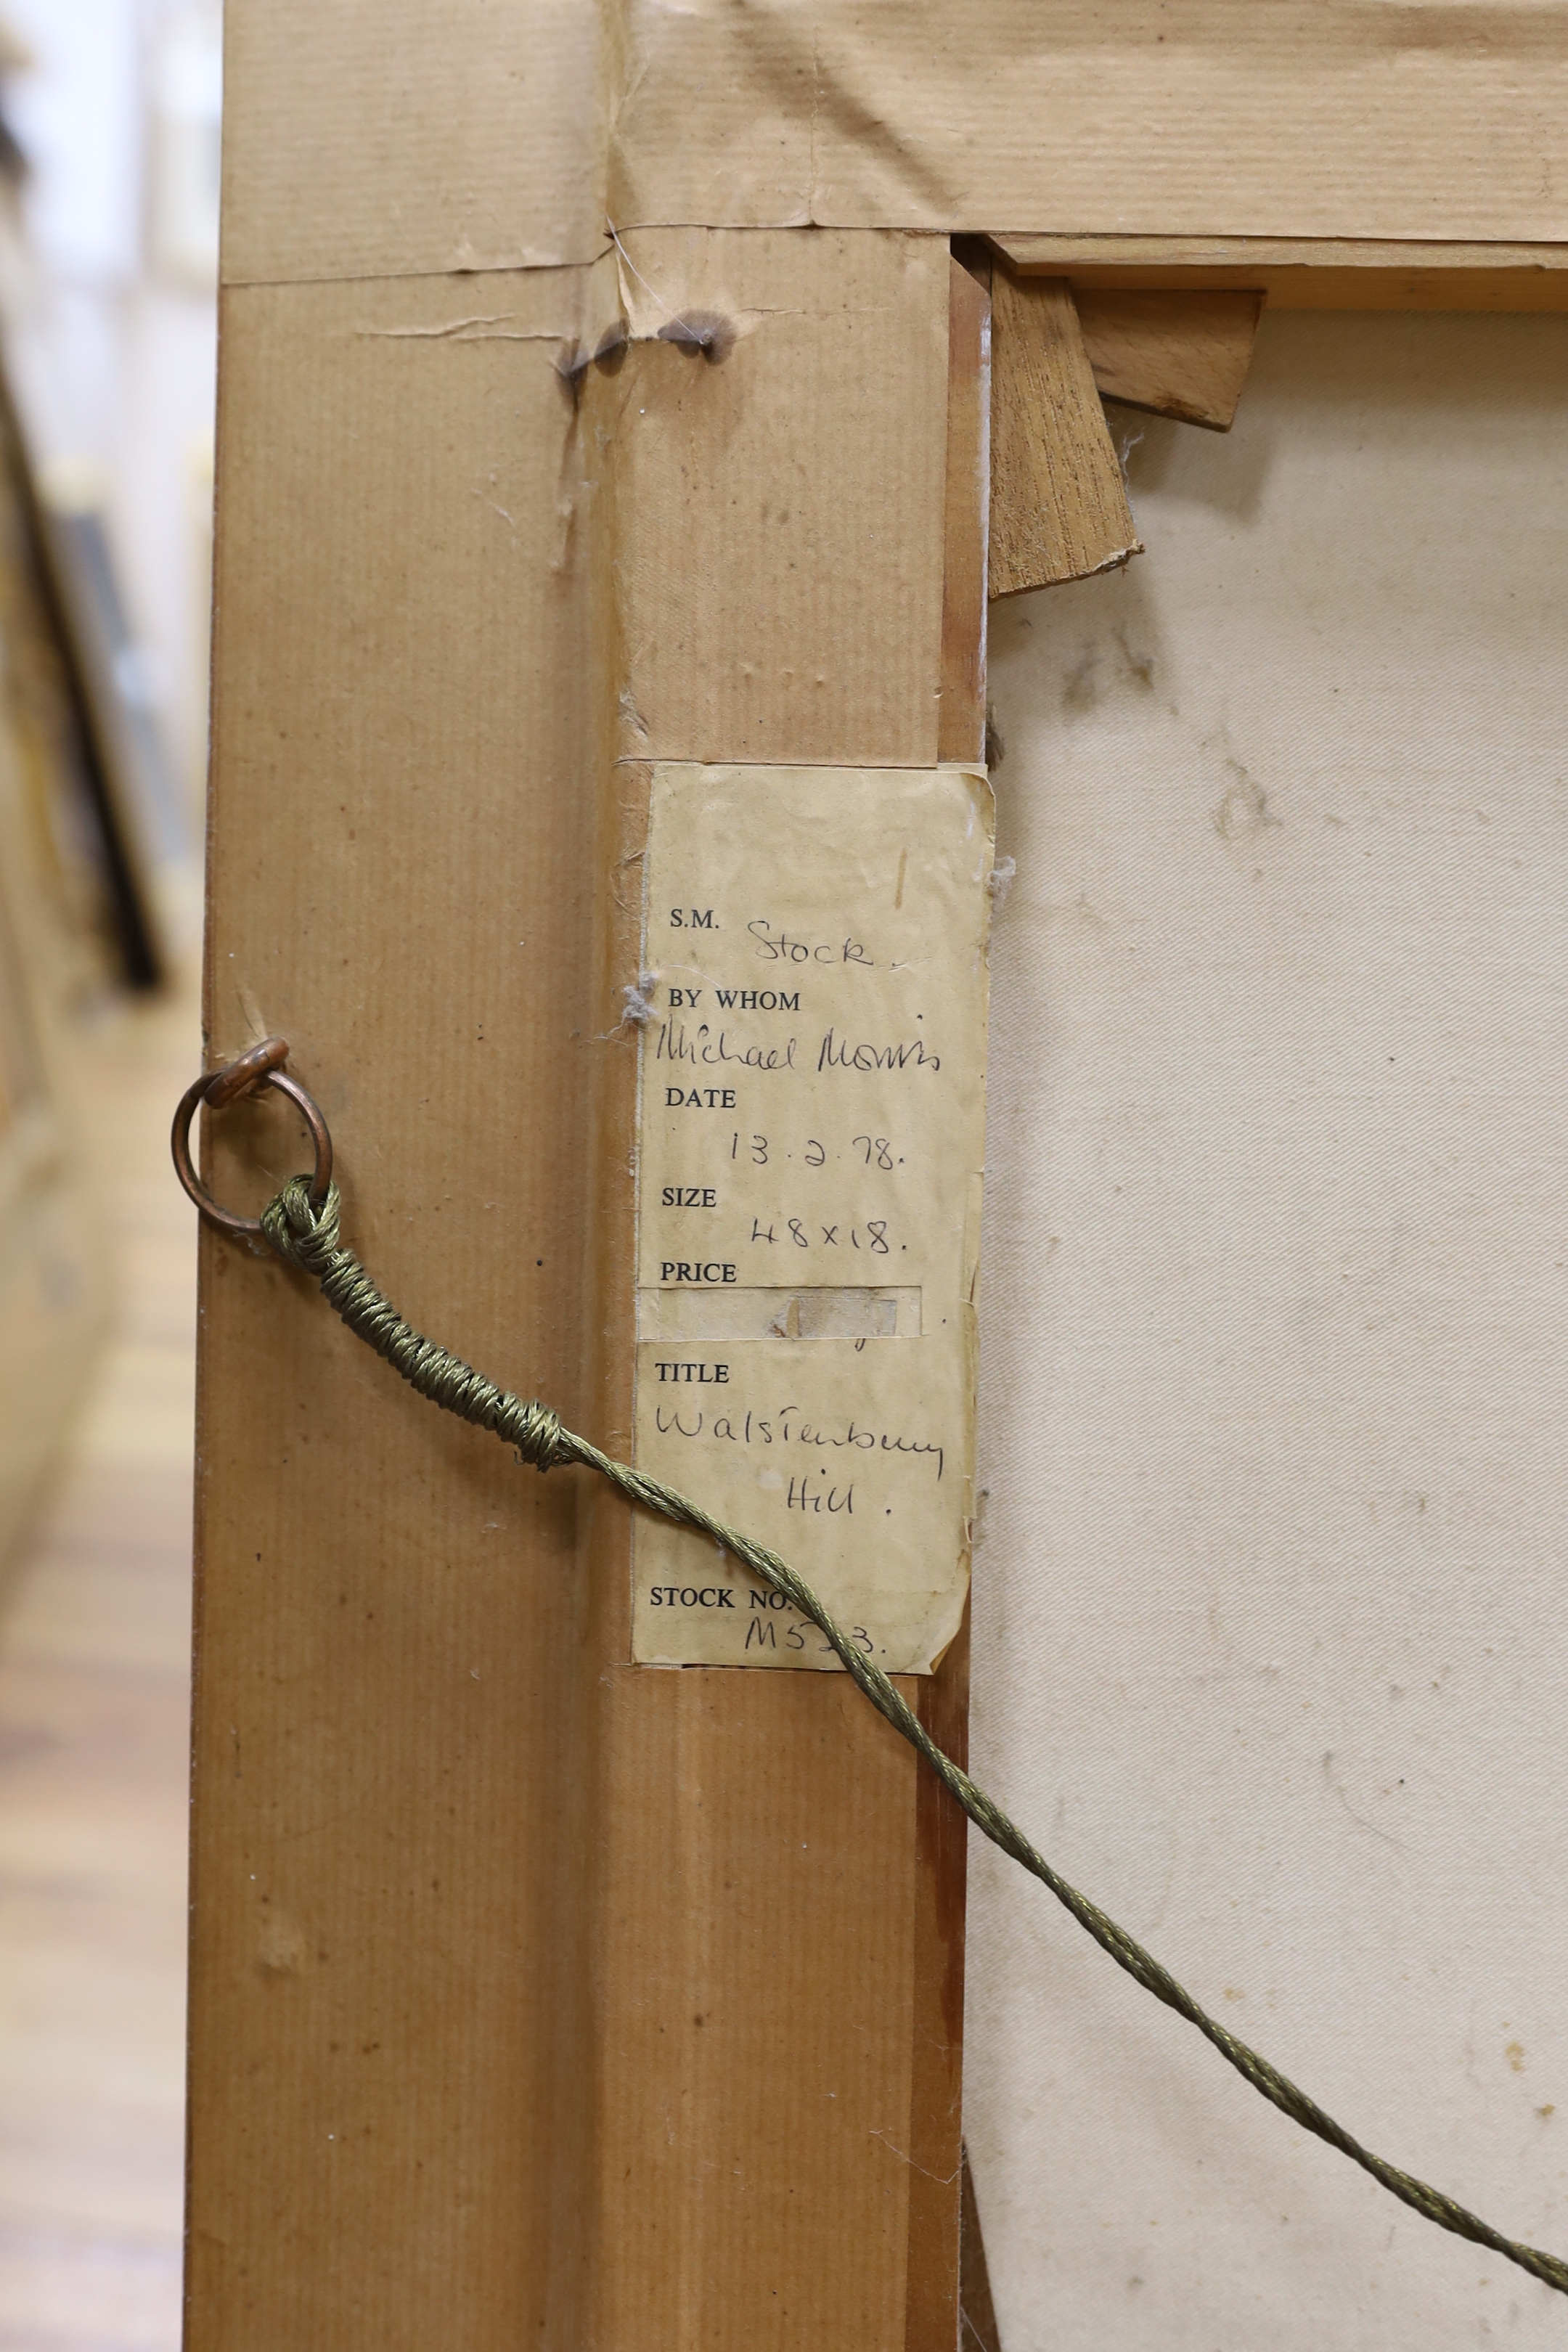 S.M.
Stock.
BY WHOM
Michael Morris
DATE
13.2.78.
SIZE
48x18.
PRICE
TITLE
Walstenbury
Hill.
STOCK NO.